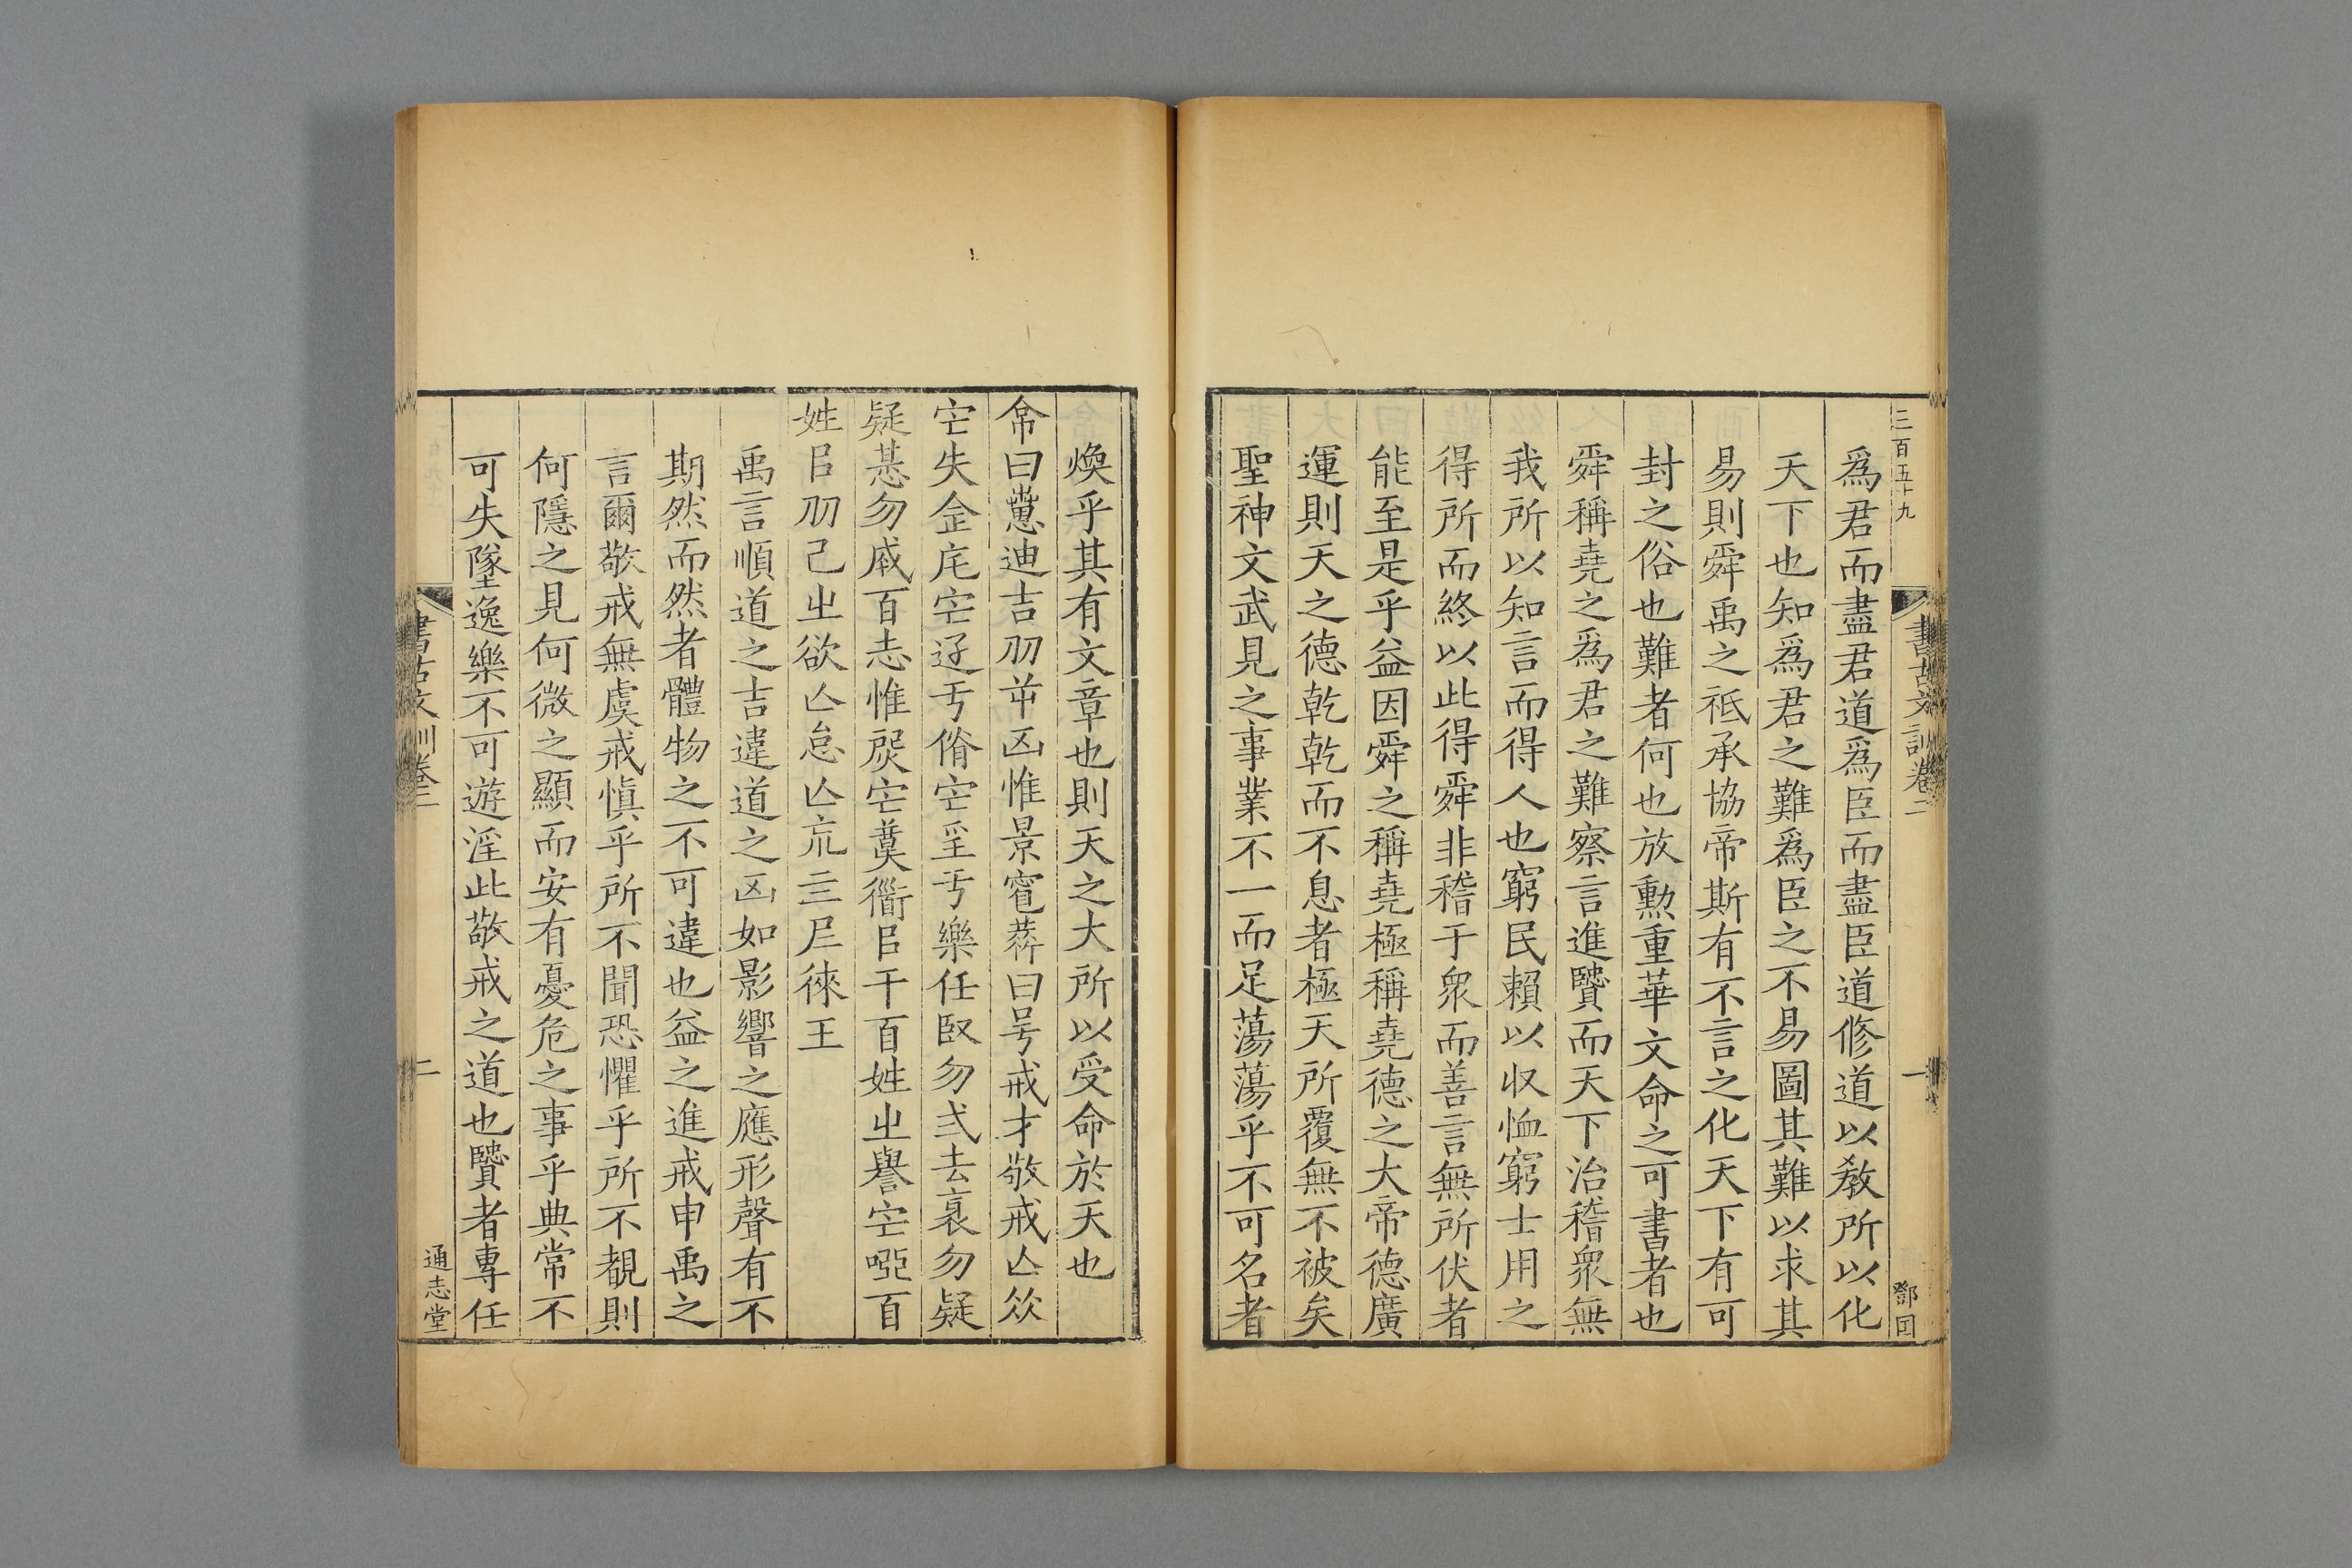 三百五十九
書古文訓卷二
一
鄧囘
爲君而盡君道爲臣而盡臣道修道以敎所以化
天下也知爲君之難爲臣之不易圖其難以求其
易則舜禹之祗承協帝斯有不言之化天下有可
封之俗也難者何也放勲重華文命之可書者也
舜稱堯之爲君之難察言進賢而天下治稽衆無
我所以知言而得人也窮民賴以收恤窮士用之
得所而終以此得舜非稽于衆而善言無所伏者
能至是乎益因舜之稱堯極稱堯德之大帝德廣
運則天之德乾乾而不息者極天所覆無不被矣
聖神文武見之事業不一而足蕩蕩乎不可名者
煥乎其有文章也則天之大所以受命於天也
帝曰蕙迪吉刅屰凶惟景雹蕣曰号戒才敬戒亾䒑
㝉失金庑㝉迋亐脩㝉㸒亐樂任臤勿弍去衺勿疑
疑惎勿成百志惟𤎫㝉蔑𧗳㠯干百姓㞢譽㝉咈百
姓㠯刅己㞢欲亾怠亾㡃亖𡰥徠王
禹言順道之吉違道之凶如影響之應形聲有不
期然而然者體物之不可違也益之進戒申禹之
言爾敬戒無虞戒愼乎所不聞恐懼乎所不覩則
何隱之見何微之顯而安有憂危之事乎典常不
可失墜逸樂不可遊淫此敬戒之道也賢者專任
書古文訓卷二
二
通志堂